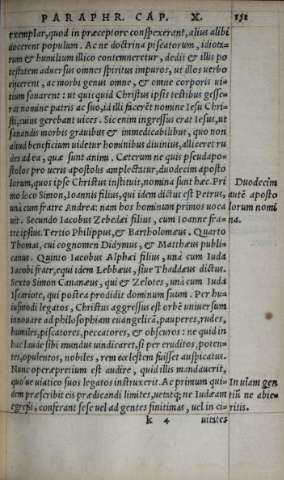 PARAPHR. CAP. X. 151
exemplar, quod in præceptore conspexerant, alius alibi
docerent populum. Ac ne doctrina piscatorum, idiota-
rum & humilium illico contemneretur, dedit & illis po
testatem aduersus omnes spiritus impuros, ut illos uerbo
eijcerent, ac morbi genus omne, & omne corporis ui-
tium sanarent: ut quicquid Christus ipsis testibus gesse-
rat nomine patris ac suo, id illi facerēt nomine Iesu Chri-
sti, cuius gerebant uices. Sic enim ingressus erat Iesus, ut
sanandis morbis grauibus & immedicabilibus, quo non
aliud beneficium uidetur hominibus diuinius, alliceret ru
des ad ea, quæ sunt animi. Cæterum ne quis pseudapo-
stolos pro ueris apostolis amplectatur, duodecim aposto
lorum, quos ipse Christus instituit, nomina sunt hæc. Pri
mo loco Simon, Ioannis filius, qui idem dictus est Petrus,
unà cum fratre Andrea: nam hos hominum primos uoca
uit. Secundo Iacobus Zebedæi filius, cum Ioanne fra-
tre ipsius. Tertio Philippus, & Bartholomæus. Quarto
Thomas, cui cognomen Didymus, & Matthæus publi-
canus. Quinto Iacobus Alphæi filius, unà cum Iuda
Iacobi fratre, qui idem Lebbæus, siue Thaddæus dictus.
Sexto Simon Cananæus, qui & Zelotes, unà cum Iuda
Iscariote, qui postea prodidit dominum suum. Per hu-
iusmodi legatos, Christus aggressus est orbē uniuersum
innouare ad philosophiam euangelicā, pauperes, rudes,
humiles, piscatores, peccatores, & obscuros: ne quid in
hac laude sibi mundus uindicaret, si per eruditos, poten-
tes, opulentos, nobiles, rem cœlestem fuisset auspicatus.
Nunc operæprecium est audire, quid illis mandauerit,
quo ue uiatico suos legatos instruxerit. Ac primum qui-
dem præscribit eis prædicandi limites, uetatq; ne Iudæam
egressi, conferant sese uel ad gentes finitimas, uel in ci-
k 4 uitates
Duodecim
autē aposto
lorum nomi
na.
In uiam gen
tiū ne abie-
ritis.